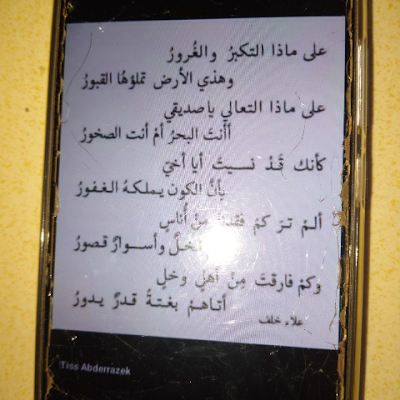 على ماذا التكبرُ والغُرورُ
وهذي الأرض تملؤهُا القبورُ
على ماذا التعالي ياصديقي
أأنتَ البحرُ أمْ أنت الصخورُ
كأنك قَدْ نسيتَ أيا أخيَ
بأنَّ الكون يملكهُ الغفورُ
ألمْ ترَ كمْ فقدنا مِنْ أُناسٍ
وأسوارٌ قصورُ
وكمْ فارقتَ مِنْ أهلٍ وخلٍ
أتاهمْ بغتةً قدرٌ يدورُ
علاء خلف
Tiss Abderrazek